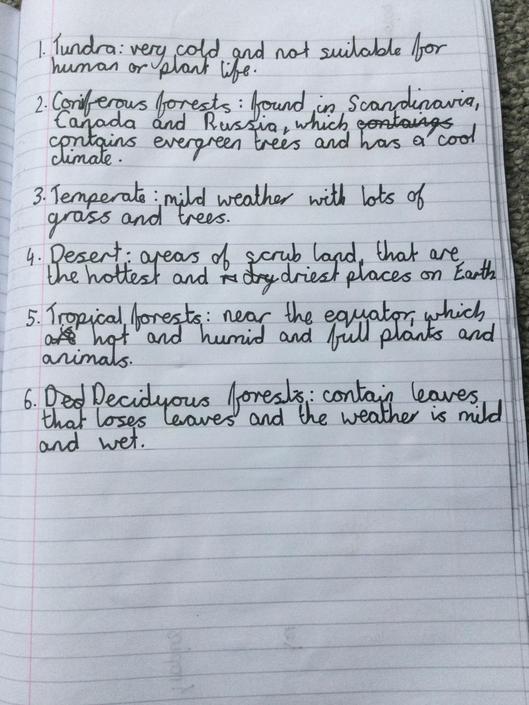 1. Tundra: very cold and not suitable for
human or plant life.
2. Coniferous forests: found in Scandinavia,
Canada and Russia, which contaings
contains evergreen trees and has a cool
climate.
3. Temperate: mild weather with lots of
grass and trees.
4. Desert: areas of scrub land, that are
the hottest and dry driest places on Earth
5. Tropical forests: near the equator, which
are hot and humid and full plants and
animals.
6. Ded Deciduous forests: contain leaves
that loses leaves and the weather is mild
and wet.